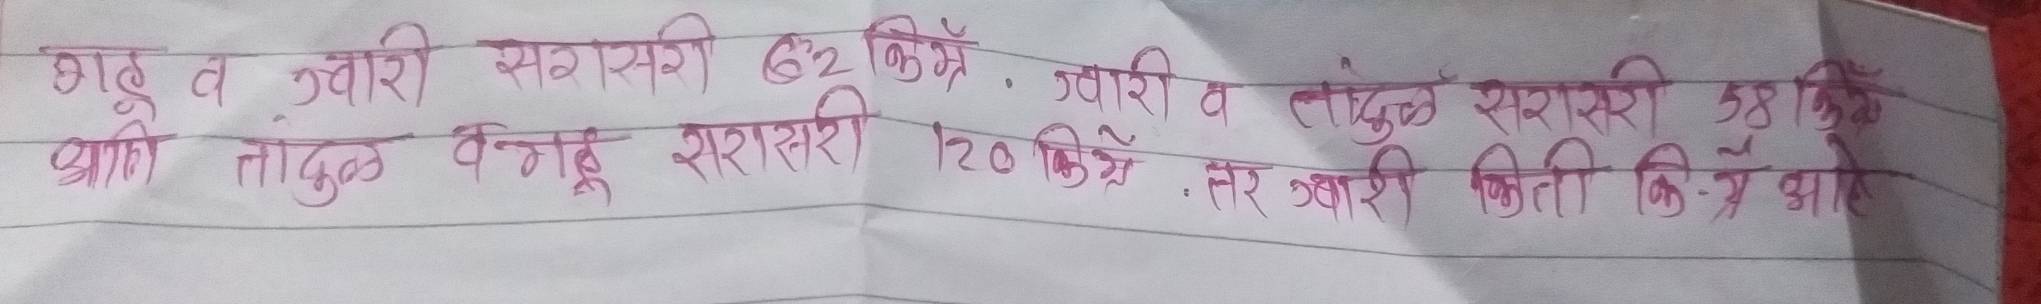 गहू व ज्वारी सरासरी 62 किग्रॅ. ज्वारी व तांदुळ सरासरी 58 किग्रॅ
आणि तांदुळ व गहू सरासरी 120 किग्रॅ. तर ज्वारी किती कि.ग्रॅ आहे